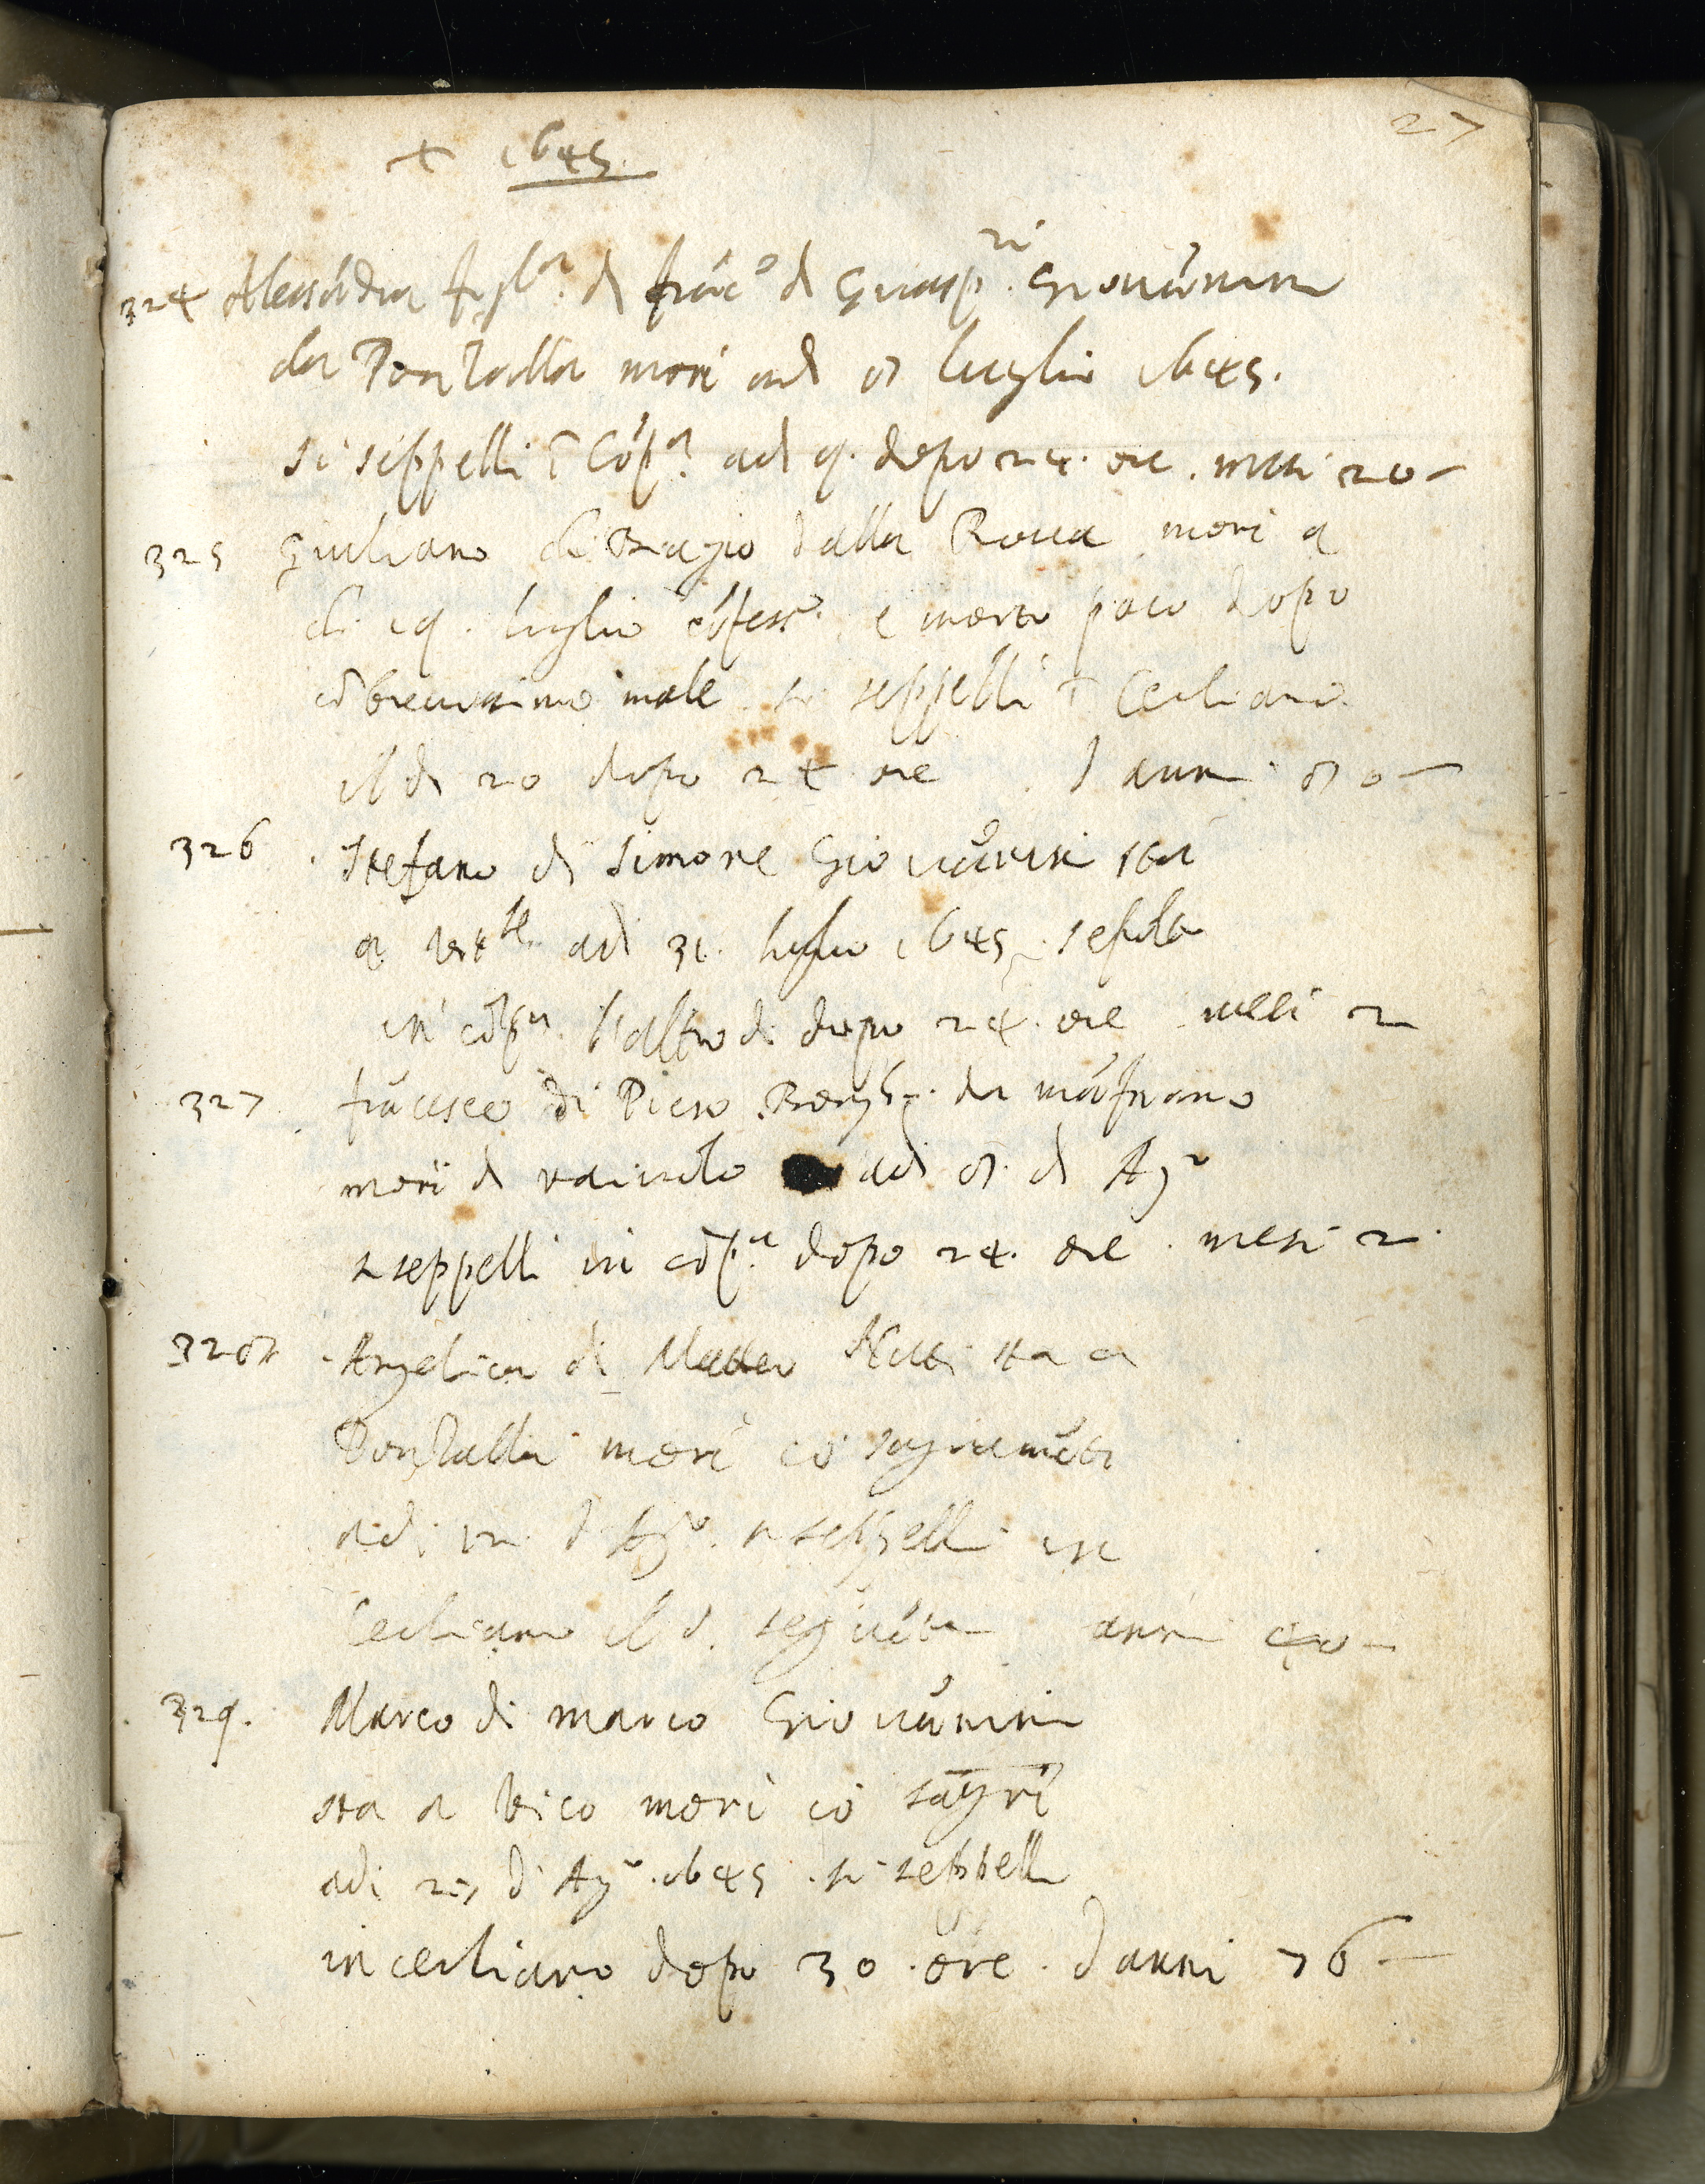 27
+ 1645.
324 Alessãdra figl.a di Frãc.o di Guasp.ri Giovãnini
da Pontalla morì adì 8 luglio 1645.
si seppellì ĩ Cõp.a adì 9. dopo 24. ore. mesi 20 -
325 Giuliano di Biagio dalla Rocca morì a
di 19. luglio cõfess.o e morto poco dopo
cõ brevissimo male si seppellì ĩ Cecliano.
il dì 20 dopo 24 ore d anni 80 -
326 . Stefano di Simone Giovãnini sta
a adì 31. luglio 1645. sepolto
in cõp.a l'altro dì dopo 24. ore mesi 2
327 frãcesco di Piero . da
morì di vaiuolo adì 8. di Ag.o
si seppellì in cõp.a dopo 24. ore . mesi 2.
328 . Angelica di Matteo sta a
Pontalla morì cõ sagramẽti
adì d Ag.o si seppellì in
Cecliano il d. seguẽte anni
329. Marco di marco Giovãnini
sta a Vico morì cõ sagrĩ
adi 25 d'Ag.o 1645 . si seppellì
in cecliano dopo 30 . ore . d anni 76 -